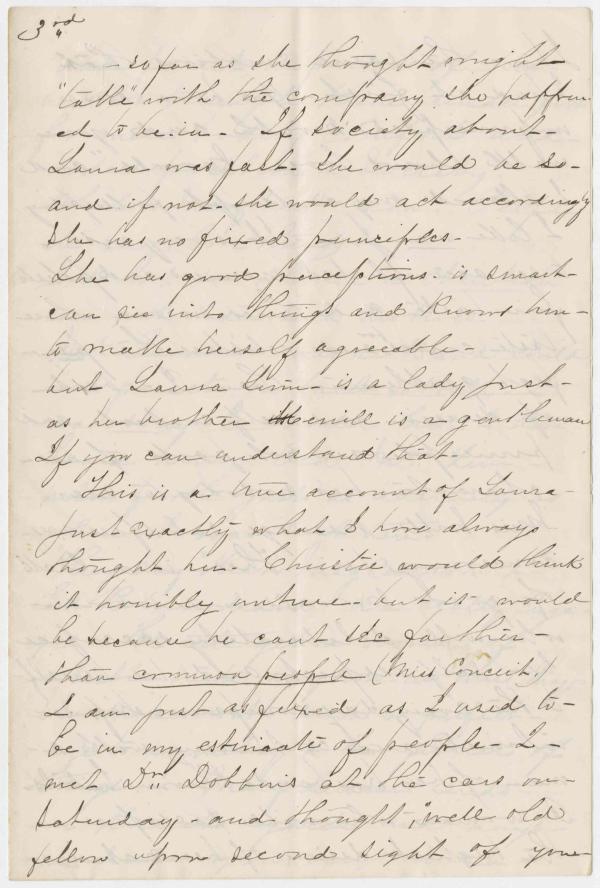 3rd
- so far as she thought might
"take" with the company she happen-
ed to be in - If society about -
Laura was fast - she would be so -
and if not - she would act accordingly
She has no fixed principles -
She has good perceptions - is smart -
can see into things and knows how -
to make herself agreeable -
but Laura is a lady just -
as her brother is a gentleman
If you can understand that -
This is a true account of Laura -
just exactly what I have always
thought her - Christie would think
it horribly untrue - but it would
be because he cant see farther -
than common people (Miss Conceit.)
I am just as fixed as I used to -
be in my estimate of people - I -
met Dr. Dobbins at the cars on -
Saturday - and thought, "well old
fellow upon second sight of you -